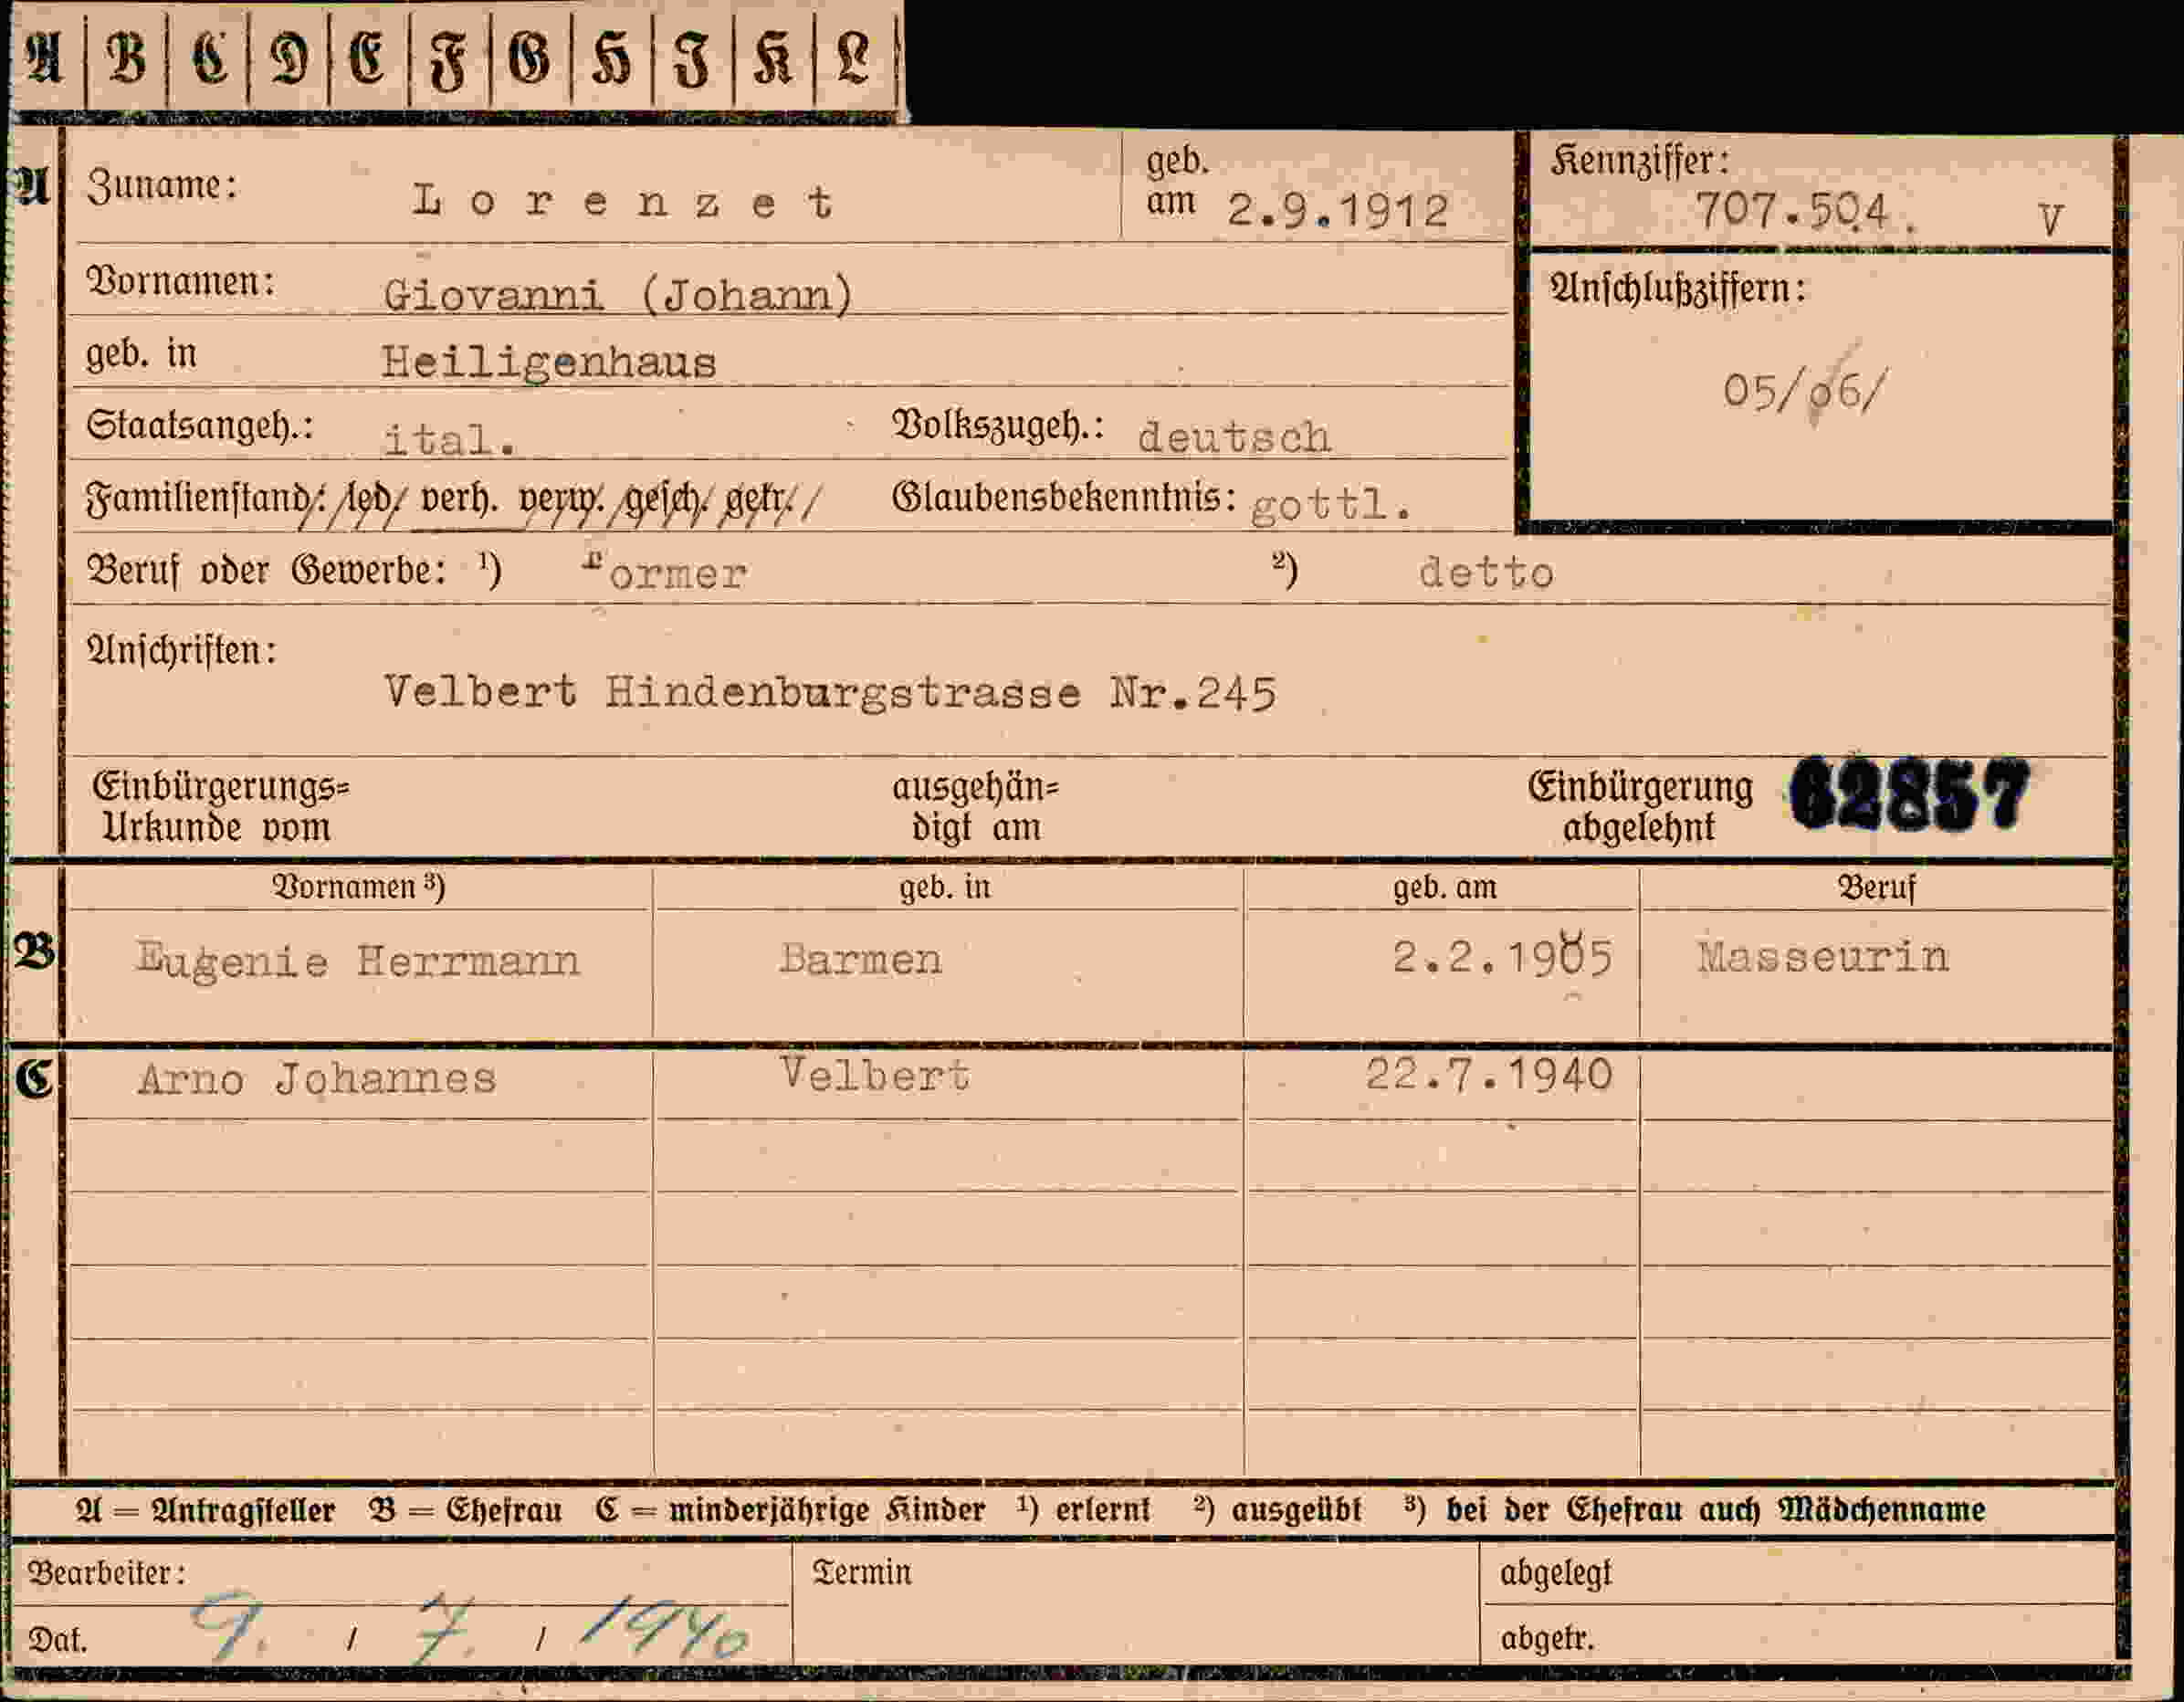 A B C D E F G H I K L
A Zuname: Lorenzet geb. am 2.9.1912 Kennziffer: 707.504. V
Vornamen: Giovanni (Johann) Anschlußziffern:
geb. in Heiligenhaus 05/06/
Staatsangeh.: ital. Volkszugeh.: deutsch
Familienstand: led. verh. verw. gesch. getr. Glaubensbekenntnis: gottl.
Beruf oder Gewerbe: ¹) Former ²) detto
Anschriften:
Velbert Hindenburgstrasse Nr.245
Einbürgerungs= ausgehän= Einbürgerung 62857
Urkunde vom digt am abgelehnt
Vornamen ³) geb. in geb. am Beruf
B Eugenie Herrmann Barmen 2.2.1905 Masseurin
C Arno Johannes Velbert 22.7.1940
A = Antragsteller B = Ehefrau C = minderjährige Kinder ¹) erlernt ²) ausgeübt ³) bei der Ehefrau auch Mädchenname
Bearbeiter: Termin abgelegt
Dat. 9. / 7. / 1940 abgetr.